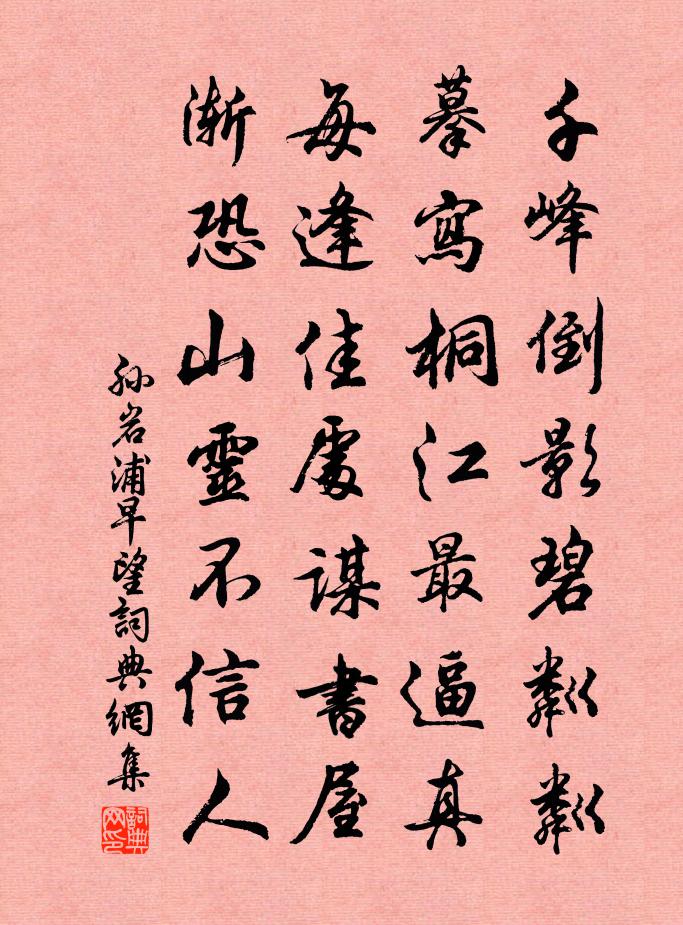 千峰倒影碧粼粼
摹寫桐江最逼真
每逢佳處謀書屋
漸恐山靈不信人
孙岩浦早望詞典網集
詞典
网印